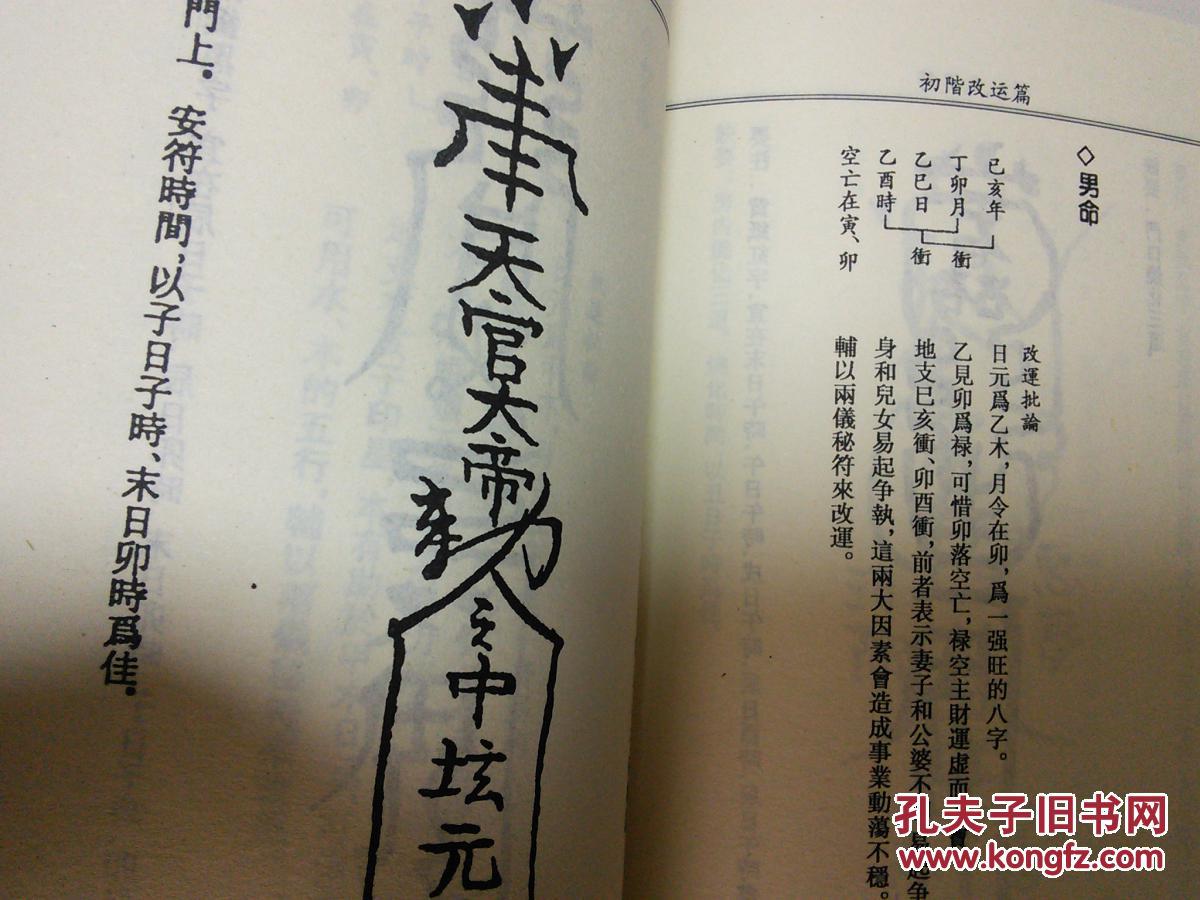 初階改运篇
◇男命
已亥年
丁卯月
乙巳日
乙酉時
空亡在寅、卯
衝
衝
改運批論
日元爲乙木，月令在卯，爲一强旺的八字。
乙見卯爲禄，可惜卯落空亡，禄空主財運虚而
地支巳亥衝、卯酉衝，前者表示妻子和公婆不
身和兒女易起争執，這兩大因素會造成事業動蕩不穩。
輔以兩儀秘符來改運。
天官大帝
勅
令
中坛元
門上。安符時間，以子日子時、末日卯時爲佳。
孔夫子旧书网
www.kongfz.com